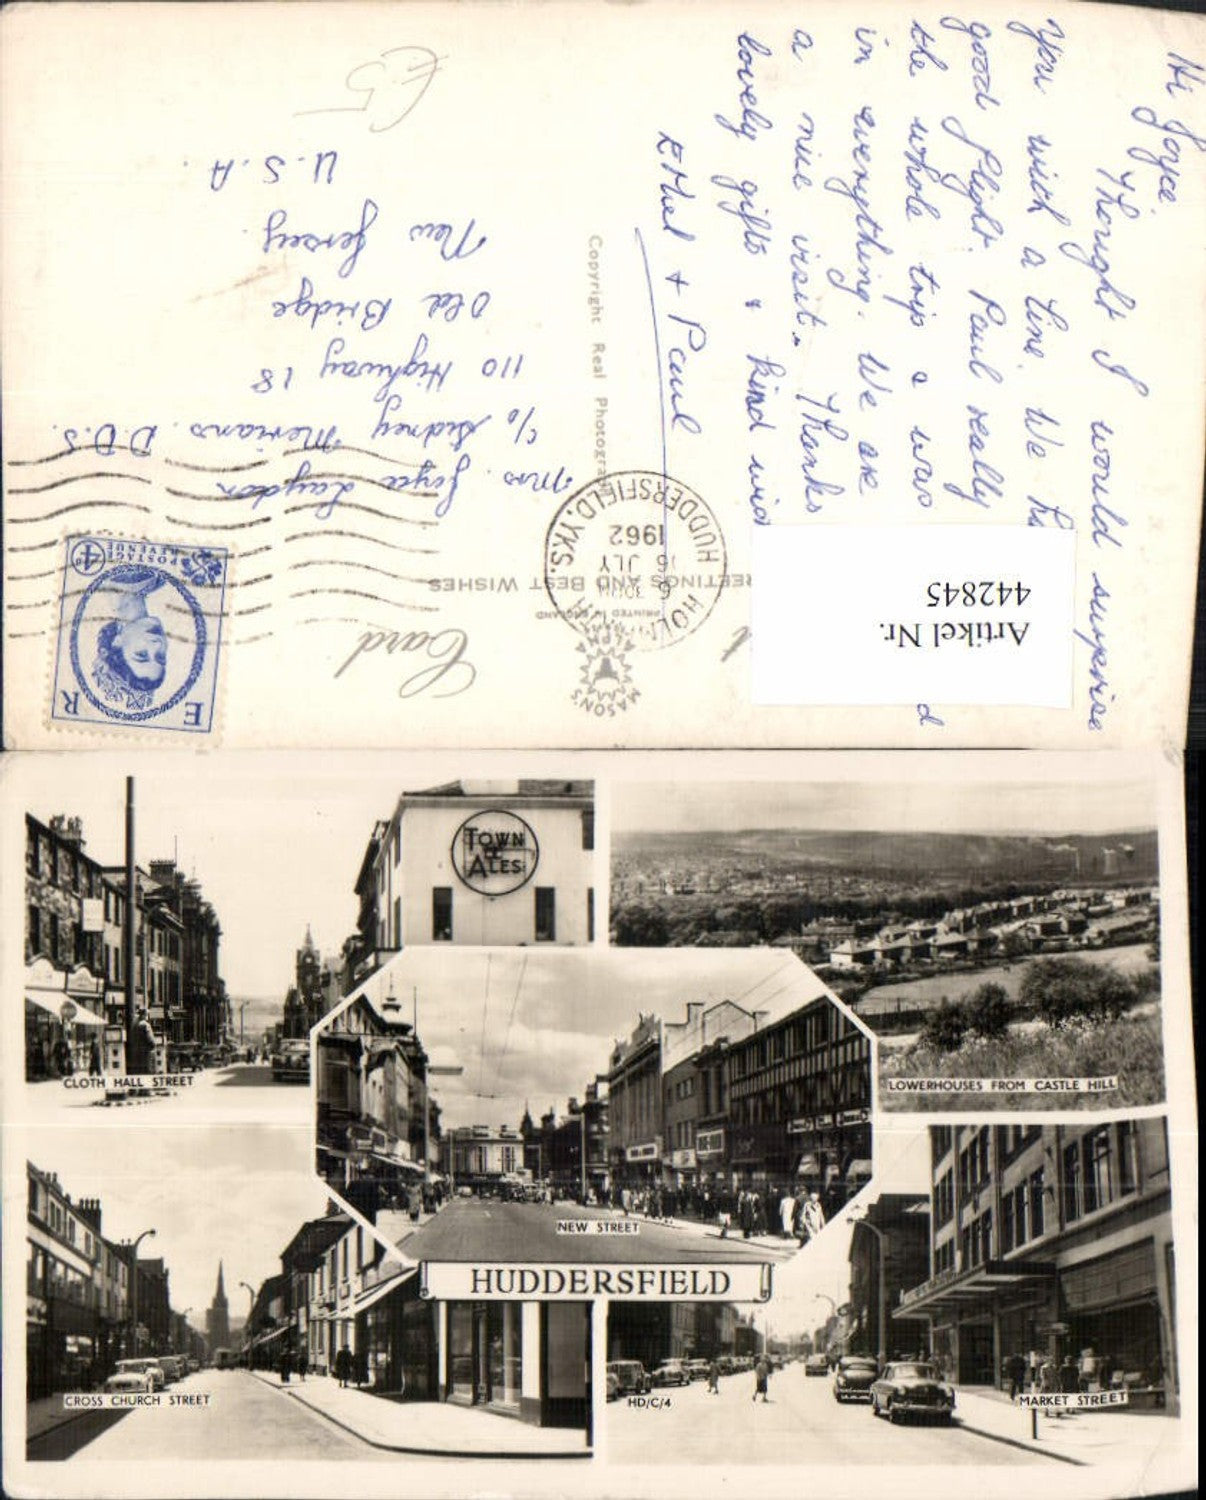 Hi Joyce
Thought I would surprise
you with a line. We
good flight. Paul really
the whole trip & was
in everything. We are
a nice visit. Thanks
lovely gifts & kind
Ethel + Paul
Card
GREETINGS AND BEST WISHES
MASON'S
ALPHA
PRINTED IN ENGLAND
Copyright Real Photograph
HUDDERSFIELD, YKS.
6
16 JLY
1962
E R
POSTAGE
REVENUE
4D
Mrs. Joyce Laydon
c/o Sidney Merians D.D.S.
110 Highway 18
Old Bridge
New Jersey.
U.S.A.
£5
Artikel Nr.
442845
TOWN
ALES
CLOTH HALL STREET
LOWERHOUSES FROM CASTLE HILL
NEW STREET
HUDDERSFIELD
CROSS CHURCH STREET
HD/C/4
MARKET STREET